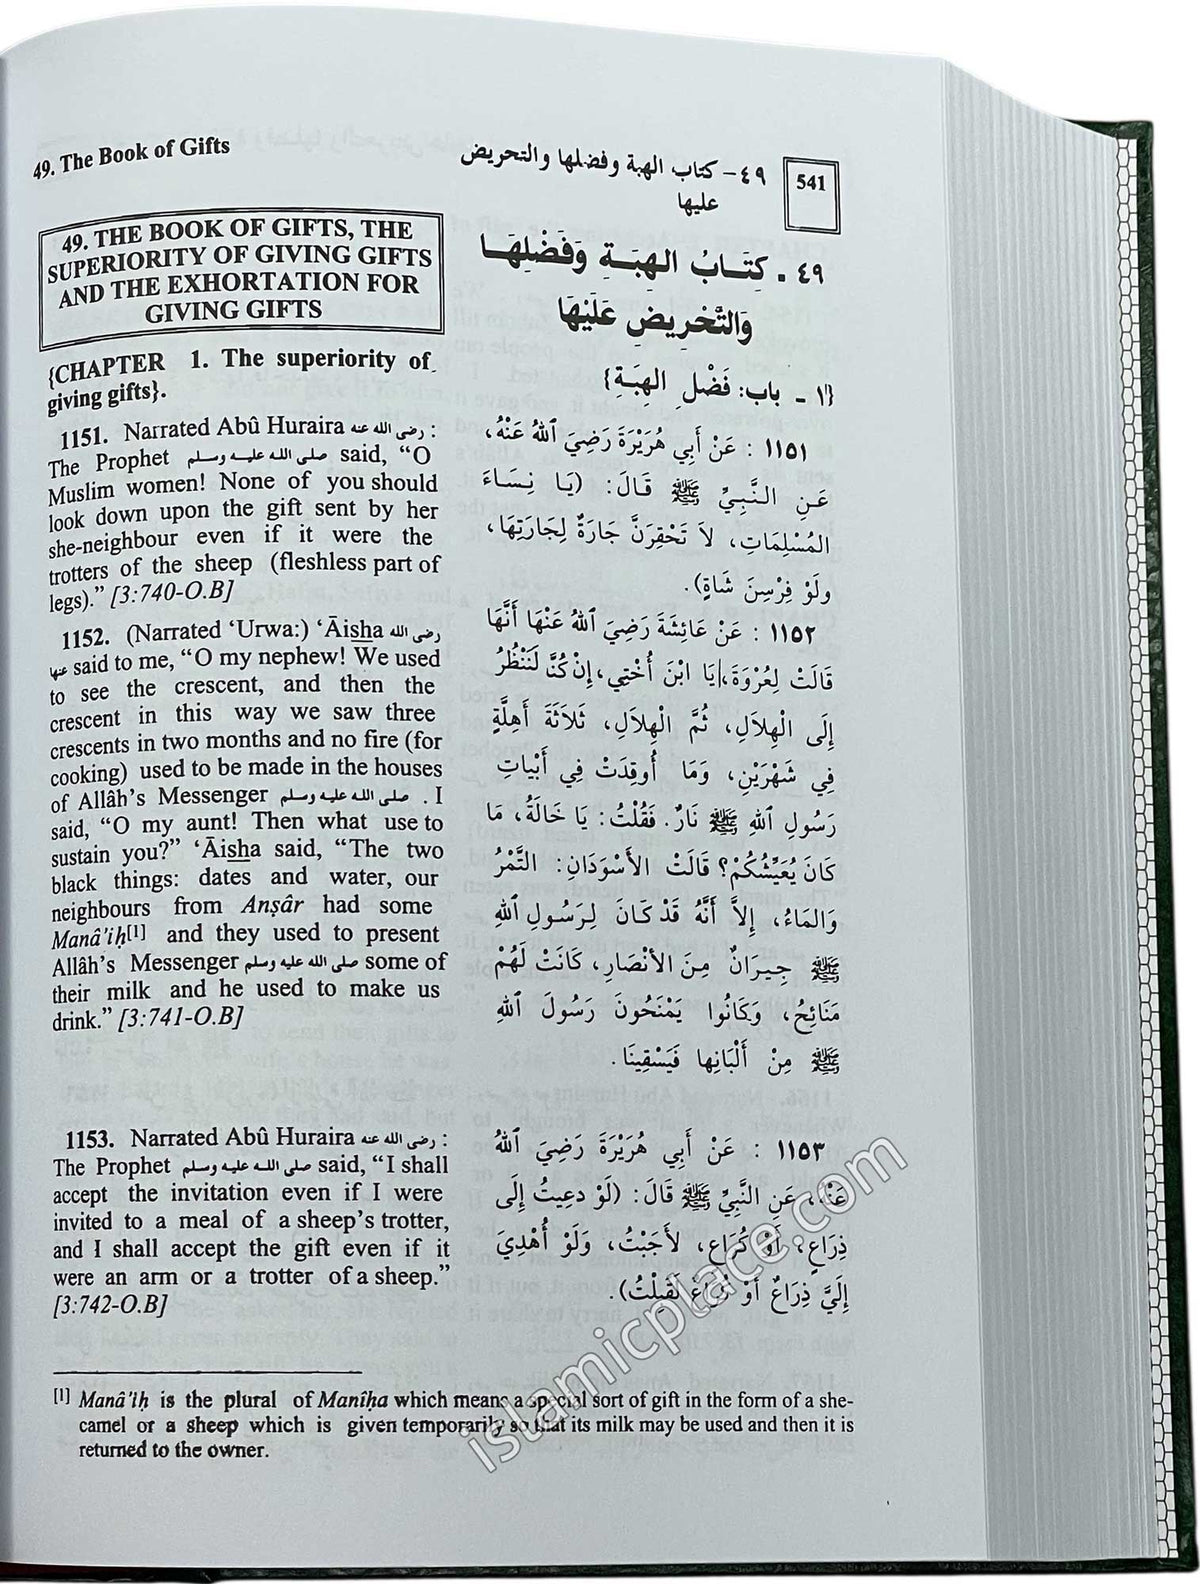 49. The Book of Gifts
٤٩ – كتاب الهبة وفضلها والتحريض
عليها
541
49. THE BOOK OF GIFTS, THE
SUPERIORITY OF GIVING GIFTS
AND THE EXHORTATION FOR
GIVING GIFTS
{CHAPTER 1. The superiority of
giving gifts}.
1151. Narrated Abû Huraira رضى الله عنه :
The Prophet صلى الله عليه وسلم said, “O
Muslim women! None of you should
look down upon the gift sent by her
she-neighbour even if it were the
trotters of the sheep (fleshless part of
legs).” [3:740-O.B]
1152. (Narrated ‘Urwa:) ‘Āisha رضى الله
عنها said to me, “O my nephew! We used
to see the crescent, and then the
crescent in this way we saw three
crescents in two months and no fire (for
cooking) used to be made in the houses
of Allâh’s Messenger صلى الله عليه وسلم . I
said, “O my aunt! Then what use to
sustain you?” ‘Āisha said, “The two
black things: dates and water, our
neighbours from Anṣâr had some
Manâ’iḥ[1] and they used to present
Allâh’s Messenger صلى الله عليه وسلم some of
their milk and he used to make us
drink.” [3:741-O.B]
1153. Narrated Abû Huraira رضى الله عنه :
The Prophet صلى الله عليه وسلم said, “I shall
accept the invitation even if I were
invited to a meal of a sheep’s trotter,
and I shall accept the gift even if it
were an arm or a trotter of a sheep.”
[3:742-O.B]
٤٩ ـ كِتَـابُ الهِبَـةِ وَفَضْلِهَـا
وَالتَّحْرِيضِ عَلَيْهَا
{١ ـ باب: فَضْلِ الهِبَةِ}
١١٥١ : عَنْ أَبِي هُرَيْرَةَ رَضِيَ اللهُ عَنْهُ،
عَنِ النَّبِيِّ ﷺ قَالَ: (يَا نِسَاءَ
المُسْلِمَاتِ، لاَ تَحْقِرَنَّ جَارَةٌ لِجَارَتِهَا،
وَلَوْ فِرْسِنَ شَاةٍ).
١١٥٢ : عَنْ عَائِشَةَ رَضِيَ اللهُ عَنْهَا أَنَّهَا
قَالَتْ لِعُرْوَةَ، يَا ابْنَ أُخْتِي، إِنْ كُنَّا لَنَنْظُرُ
إِلَى الْهِلاَلِ، ثُمَّ الْهِلاَلِ، ثَلاَثَةَ أَهِلَّةٍ
فِي شَهْرَيْنِ، وَمَا أُوقِدَتْ فِي أَبْيَاتِ
رَسُولِ اللهِ ﷺ نَارٌ. فَقُلْتُ: يَا خَالَةُ، مَا
كَانَ يُعَيِّشُكُمْ؟ قَالَتْ الأَسْوَدَانِ: التَّمْرُ
وَالمَاءُ، إِلاَّ أَنَّهُ قَدْ كَانَ لِرَسُولِ اللهِ
ﷺ جِيرَانٌ مِنَ الأَنْصَارِ، كَانَتْ لَهُمْ
مَنَائِحُ، وَكَانُوا يَمْنَحُونَ رَسُولَ اللهِ
ﷺ مِنْ أَلْبَانِهَا فَيَسْقِينَا.
١١٥٣ : عَنْ أَبِي هُرَيْرَةَ رَضِيَ اللهُ
عَنْهُ، عَنِ النَّبِيِّ ﷺ قَالَ: (لَوْ دعِيتُ إِلَى
ذِرَاعٍ، أَوْ كُرَاعٍ، لأَجَبْتُ، وَلَوْ أُهْدِيَ
إِلَيَّ ذِرَاعٌ أَوْ كُرَاعٌ لَقَبِلْتُ).
[1] Manâ’iḥ is the plural of Maniḥa which means a special sort of gift in the form of a she-
camel or a sheep which is given temporarily so that its milk may be used and then it is
returned to the owner.
islamicplace.com